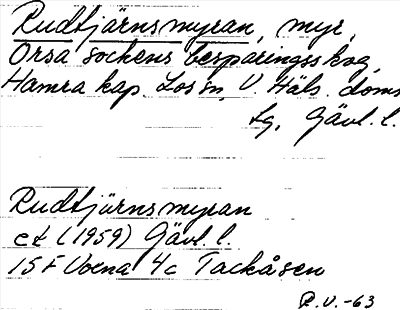 Rudtjärnsmyran, myr,
Orsa sockens besparingsskog,
Hamra kap. Los sn, V. Häls. doms
tg, Gävl. l.
Rudtjärnsmyran
ek (1959) Gävl. l.
15 F Voxna 4c Tackåsen
R.V.-63